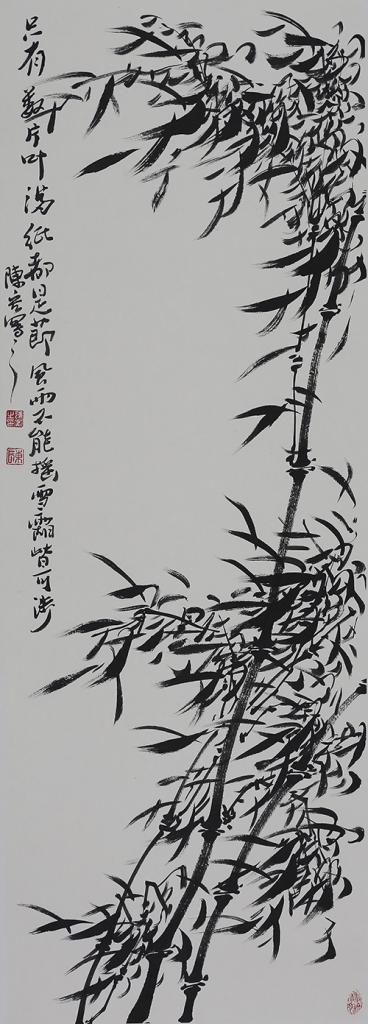 只有数片叶满纸都是节风雨不能摇雪霜皆可涉
陈 写之